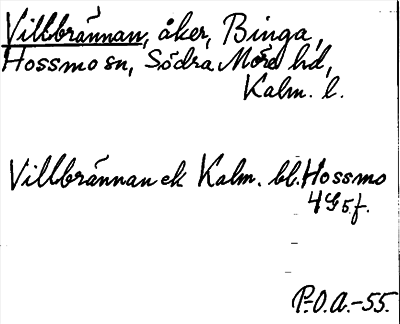 Villbrännan, åker, Binga,
Hossmo sn, Södra Möre hd,
Kalm. l.
Villbrännan ek Kalm. bl. Hossmo
4G5f.
P.-O.A.-55.